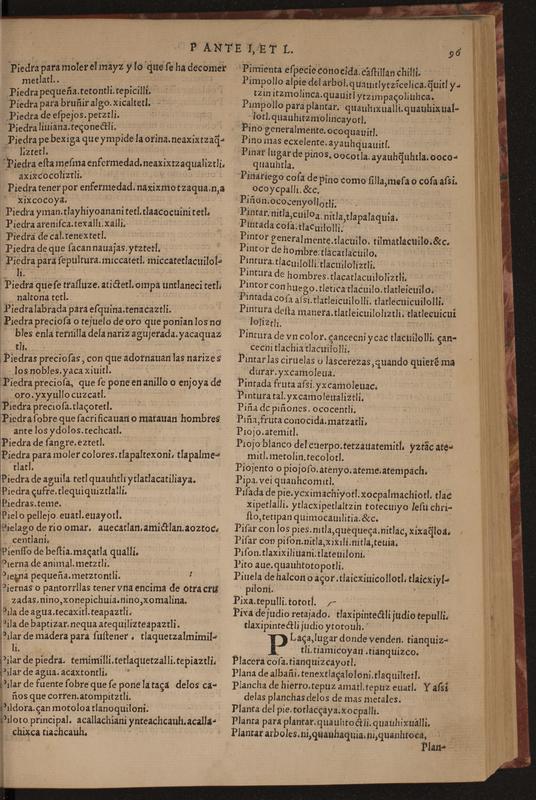 P ANTE I, ET L.
96
Piedra para moler el mayz y lo que se ha decomer
metlatl.
Piedra pequeña. tetontli. tepicilli.
Piedra para bruñir algo. xicaltetl.
Piedra de espejos. petztli.
Piedra liuiana. teçonectli.
Piedra pe bexiga que ympide la orina. neaxixtzaq̃-
liztetl.
Piedra esta mesma enfermedad. neaxixtzaqualiztli.
axixcocoliztli.
Piedra tener por enfermedad. naxixmotzaqua. n, a
xixcocoya.
Piedra yman. tlayhiyoanani tetl. tlaacocuini tetl.
Piedra arenisca. texalli. xalli.
Piedra de cal. tenextetl.
Piedra de que sacan nauajas. ytztetl.
Piedra para sepultura. miccatetl. miccatetlacuilol-
li.
Piedra que se trasluze. atictetl. ompa untlaneci tetl.
naltona tetl.
Piedra labrada para esquina. tenacaztli.
Piedra preciosa o tejuelo de oro que ponian los no
bles enla ternilla dela nariz agujerada. yacaquaz
tli.
Piedras preciosas, con que adornauan las narizes
los nobles. yaca xiuitl.
Piedra preciosa, que se pone en anillo o enjoya de
oro. yxyullo cuzcatl.
Piedra preciosa. tlaçotetl.
Piedra sobre que sacrificauan o matauan hombres
ante los ydolos. techcatl.
Piedra de sangre. eztetl.
Piedra para moler colores. tlapaltexoni. tlapalme-
tlatl.
Piedra de aguila. tetl quauhtli ytlatlacatiliaya.
Piedra çufre. tlequiquiztlalli.
Piedras. teme.
Piel o pellejo. euatl. euayotl.
Pielago de rio o mar. auecatlan. amictlan. aoztoc.
centlani.
Piensso de bestia. maçatla qualli.
Pierna de animal. metztli.
Pierna pequeña. metztontli.
Piernas o pantorrllas tener vna encima de otra cru
zadas. nino, xonepichuia. nino, xomalina.
Pila de agua. tecaxitl. teapaztli.
Pila de baptizar. nequa atequilizteapaztli.
Pilar de madera para sustener. tlaquetzalmimil-
li.
Pilar de piedra. temimilli. tetlaquetzalli. tepiaztli.
Pilar de agua. acaxtontli.
Pilar de fuente sobre que se pone la taça delos ca-
ños que corren. atompitztli.
Pildora. çan motoloa tlanoquiloni.
Piloto principal. acallachiani ynteachcauh. acalla-
chixca tiachcauh.
Pimienta especie conocida. castillan chilli.
Pimpollo al pie del arbol. quauitl ytzīcelica. q̃uitl y-
tzin itzmolinca. quauitl ytzimpaçoliuhca.
Pimpollo para plantar. quauhixualli. quauhixual-
lotl. quauhitzmolincayotl.
Pino generalmente. ocoquauitl.
Pino mas ecxelente. ayauhquauitl.
Pinar lugar de pinos. oocotla. ayauhq̃uhtla. ocо-
quauhtla.
Pinariego cosa de pino como silla, mesa o cosa assi.
ocoycpalli. &c.
Piñon. ococenyollotli.
Pintar. nitla, cuiloa. nitla, tlapalaquia.
Pintada cosa. tlacuilolli.
Pintor generalmente. tlacuilo. tilmatlacuilo. &c.
Pintor de hombre. tlacatlacuilo.
Pintura. tlacuilolli. tlacuiloliztli.
Pintura de hombres. tlacatlacuiloliztli.
Pintor con huego. tletica tlacuilo. tlatleicuilo.
Pintada cosa assi. tlatleicuilolli. tlatlecuicuilolli.
Pintura desta manera. tlatleicuiloliztli. tlatlecuicui
loliztli.
Pintura de vn color. çancecni ycac tlacuilolli. çan-
cecni tlachia tlacuilolli.
Pintar las ciruelas o lascerezas, quando quierē ma
durar. yxcamoleua.
Pintada fruta assi. yxcamoleuac.
Pintura tal. yxcamoleualiztli.
Piña de piñones. ococentli.
Piña, fruta conocida. matzatli.
Piojo. atemitl.
Piojo blanco del cuerpo. tetzauatemitl. yztāc ate-
mitl. metolin. tecolotl.
Piojento o piojoso. atenyo. ateme. atempach.
Pipa. vei quauhcomitl.
Pisada de pie. ycximachiyotl. xocpalmachiotl. tlac
xipetlalli. ytlacxipetlaltzin totecuiyo Iesu chri-
sto, tetipan quimocauilitia. &c.
Pisar con los pies. nitla, quequeça. nitlac, xixaq̃loa.
Pisar con pison. nitla, xixili. nitla, teuia.
Pison. tlaxixiliuani. tlateuiloni.
Pito aue. quauhtotopotli.
Piuela de halcon o açor. tlaicxiuicollotl. tlaicxiyl-
piloni.
Pixa. tepulli. tototl.
Pixa de judio retajado. tlaxipintectli judio tepulli.
tlaxipintectli judio ytotouh.
PLaça, lugar donde venden. tianquiz-
tli. tiamicoyan. tianquizco.
Placera cosa. tianquizcayotl.
Plana de albañi. tenextlaçaloloni. tlaquiltetl.
Plancha de hierro. tepuz amatl. tepuz euatl. Y assi
delas planchas delos de mas metales.
Planta del pie. totlacçaya. xocpalli.
Planta para plantar. quauhtoctli. quauhixualli.
Plantar arboles. ni, quauhaquia. ni, quauhtoca,
Plan-